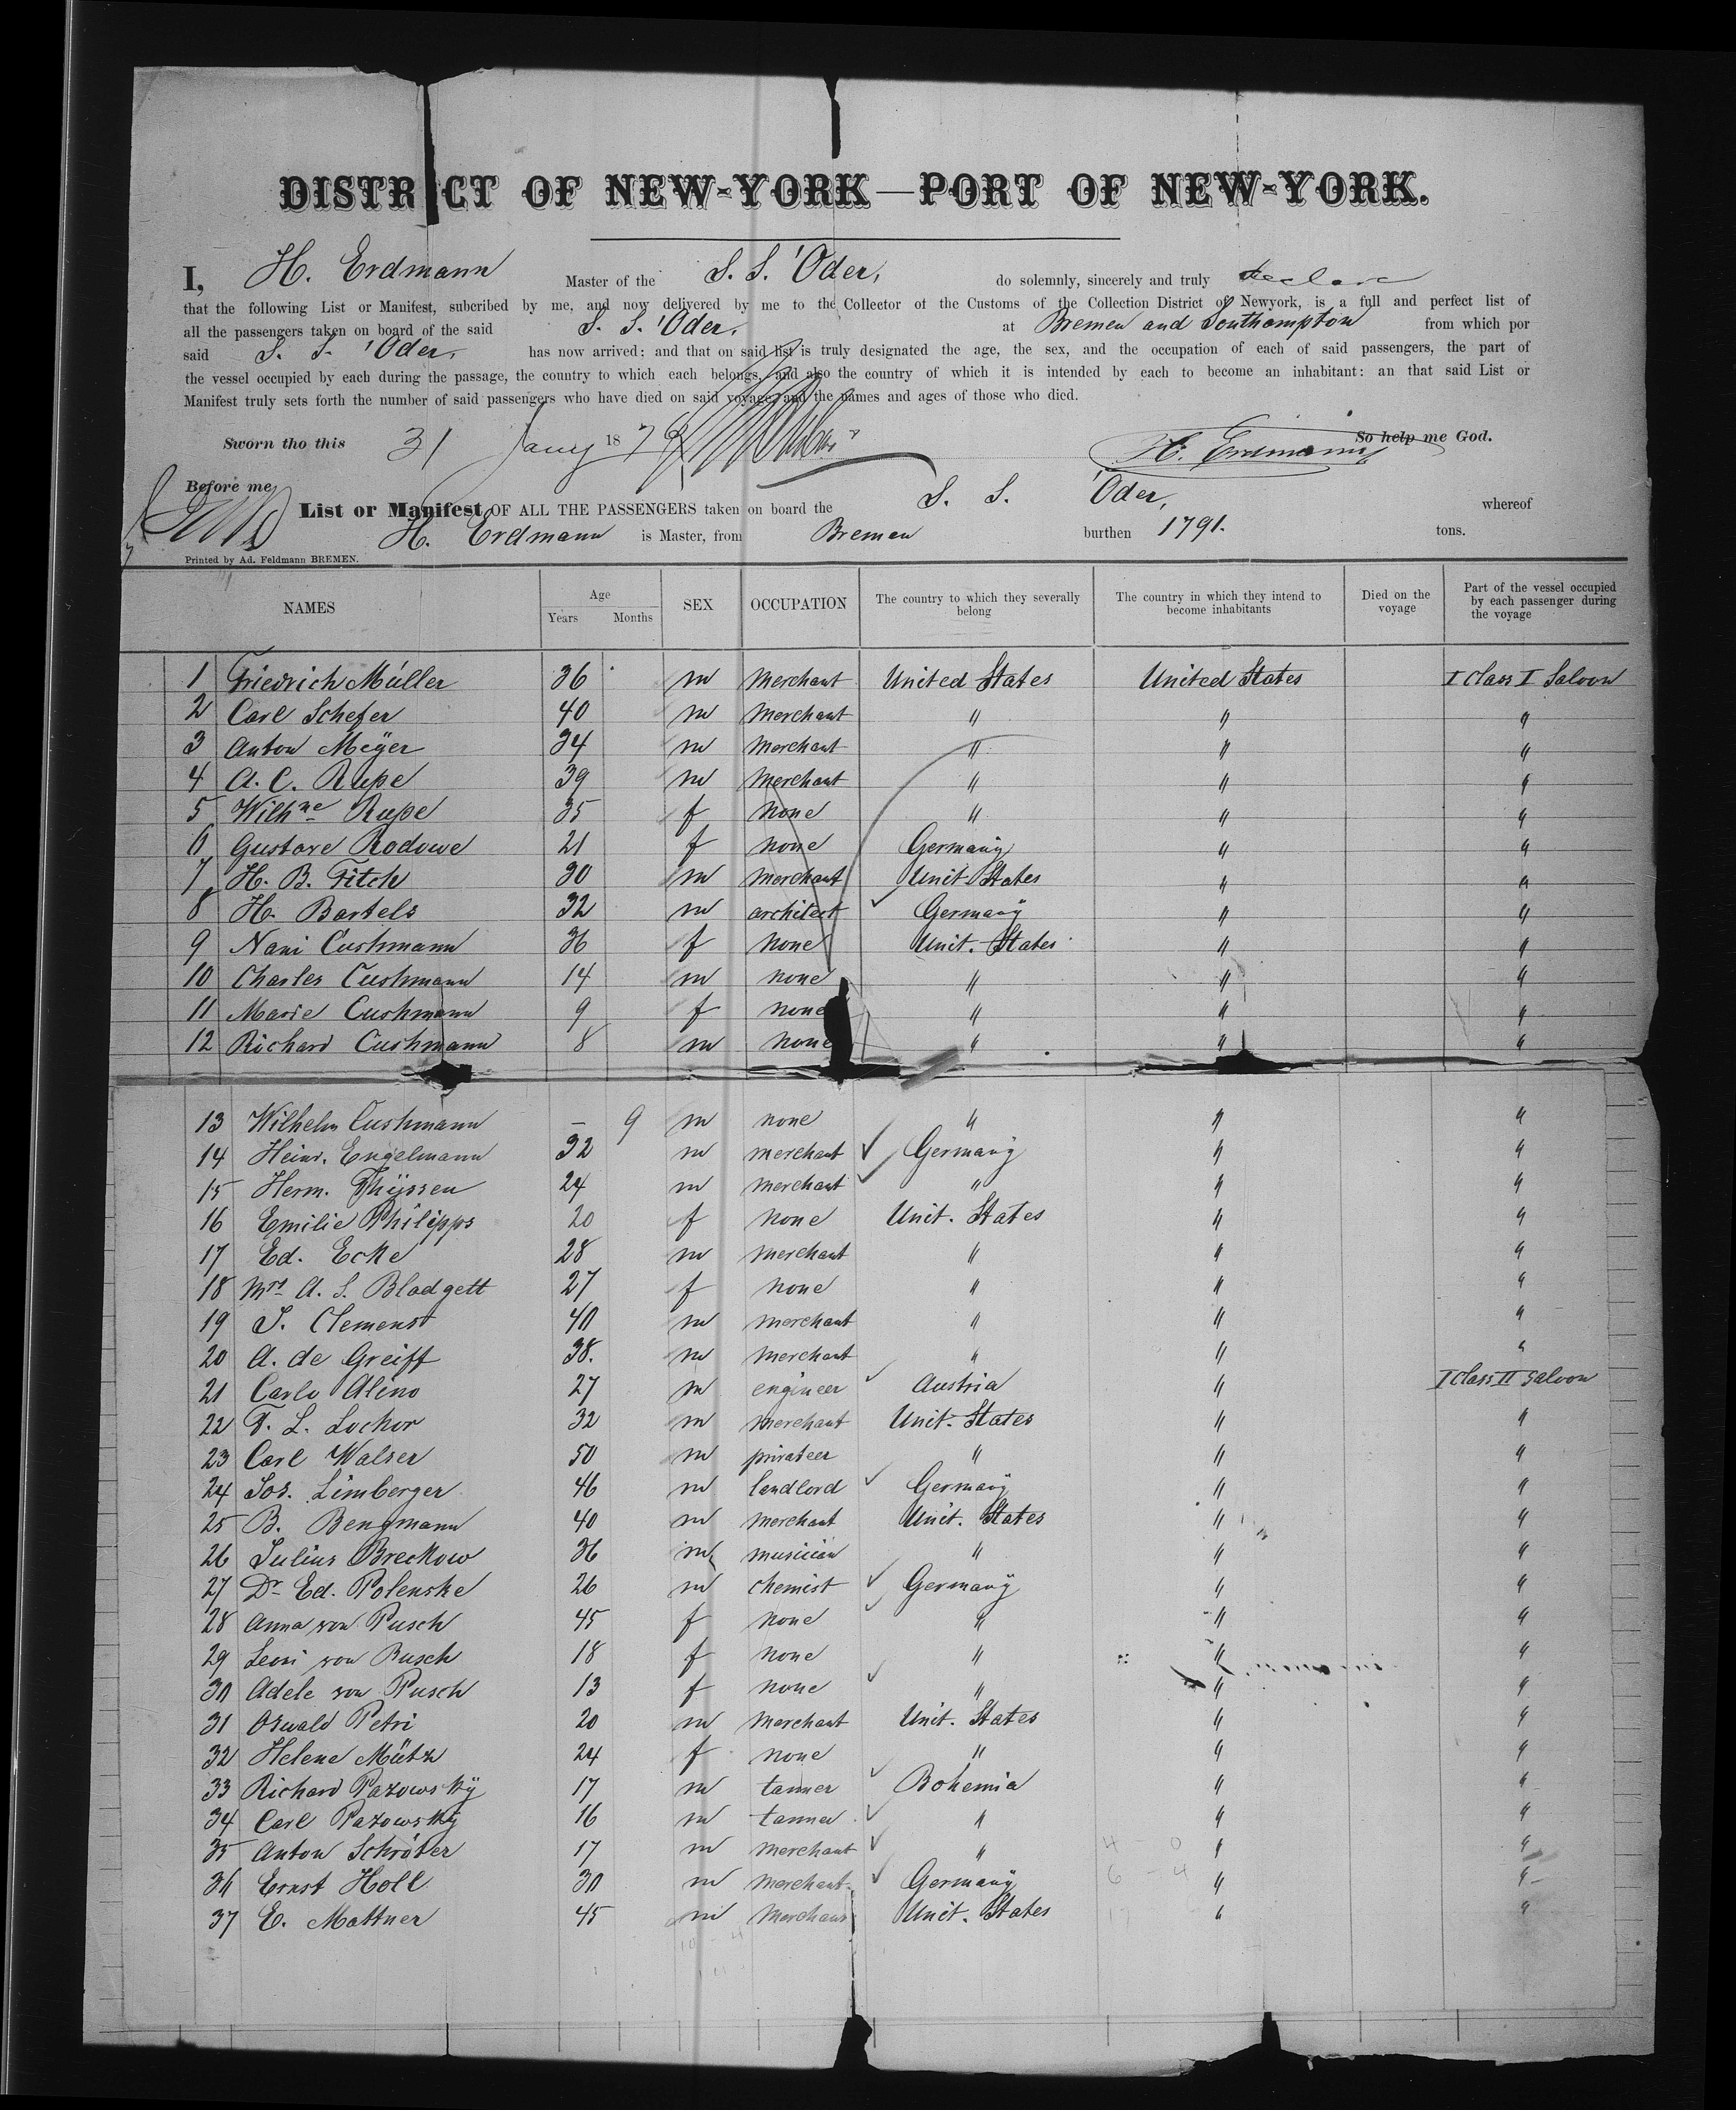 DISTRICT OF NEW-YORK—PORT OF NEW-YORK.
I, H. Erdmann Master of the S. S. 'Oder, do solemnly, sincerely and truly declare
that the following List or Manifest, subcribed by me, and now delivered by me to the Collector of the Customs of the Collection District of Newyork, is a full and perfect list of
all the passengers taken on board of the said S. S. 'Oder, at Bremen and Southampton from which por
said S. S. 'Oder, has now arrived: and that on said list is truly designated the age, the sex, and the occupation of each of said passengers, the part of
the vessel occupied by each during the passage, the country to which each belongs, and also the country of which it is intended by each to become an inhabitant: an that said List or
Manifest truly sets forth the number of said passengers who have died on said voyage, and the names and ages of those who died.
Sworn tho this 31 Jany 1879 So help me God.
H. Erdmann
Before me
List or Manifest OF ALL THE PASSENGERS taken on board the S. S. 'Oder, whereof
H. Erdmann is Master, from Bremen burthen 1791. tons.
Printed by Ad. Feldmann BREMEN.
NAMES Age Years Months SEX OCCUPATION The country to which they severally belong The country in which they intend to become inhabitants Died on the voyage Part of the vessel occupied by each passenger during the voyage
1 Friedrich Müller 36 m Merchant United States United States I Class I Saloon
2 Carl Schefer 40 m Merchant " " "
3 Anton Meÿer 34 m Merchant " " "
4 A. C. Rupe 39 m Merchant " " "
5 Wilhne Rupe 35 f none " " "
6 Gustave Rodowe 21 f none Germanÿ " "
7 H. B. Fitch 30 m Merchant Unit. States " "
8 H. Bartels 32 m architect Germanÿ " "
9 Nani Cushmann 36 f none Unit. States " "
10 Charles Cushmann 14 m none " " "
11 Marie Cushmann 9 f none " " "
12 Richard Cushmann 8 m none " " "
13 Wilhelm Cushmann – 9 m none " " "
14 Heinr. Engelmann 32 m merchant Germanÿ " "
15 Herm. Thÿssen 24 m merchant " " "
16 Emilie Philipps 20 f none Unit. States " "
17 Ed. Ecke 28 m merchant " " "
18 Mrs A. S. Bladgett 27 f none " " "
19 J. Clemenst 40 m merchant " " "
20 A. de Greiff 38. m merchant " " "
21 Carlo Alino 27 m engineer Austria " I Class II Saloon
22 F. L. Lochor 32 m merchant Unit. States " "
23 Carl Walser 50 m privateer " " "
24 Jos. Limberger 46 m landlord Germanÿ " "
25 B. Bengmann 40 m merchant Unit. States " "
26 Julius Breckow 36 m musician " " "
27 Dr Ed. Polenske 26 m chemist Germanÿ " "
28 Anna von Pusch 45 f none " " "
29 Leoni von Busch 18 f none " " "
30 Adele von Pusch 13 f none " " "
31 Oswald Petri 20 m Merchant Unit. States " "
32 Helene Mütz 24 f none " " "
33 Richard Pazowskÿ 17 m tanner Bohemia " "
34 Carl Pazowskÿ 16 m tanner " " "
35 Anton Schröter 17 m merchant " " "
36 Ernst Holl 30 m merchant Germanÿ " "
37 E. Mattner 45 m Merchant Unit. States " "